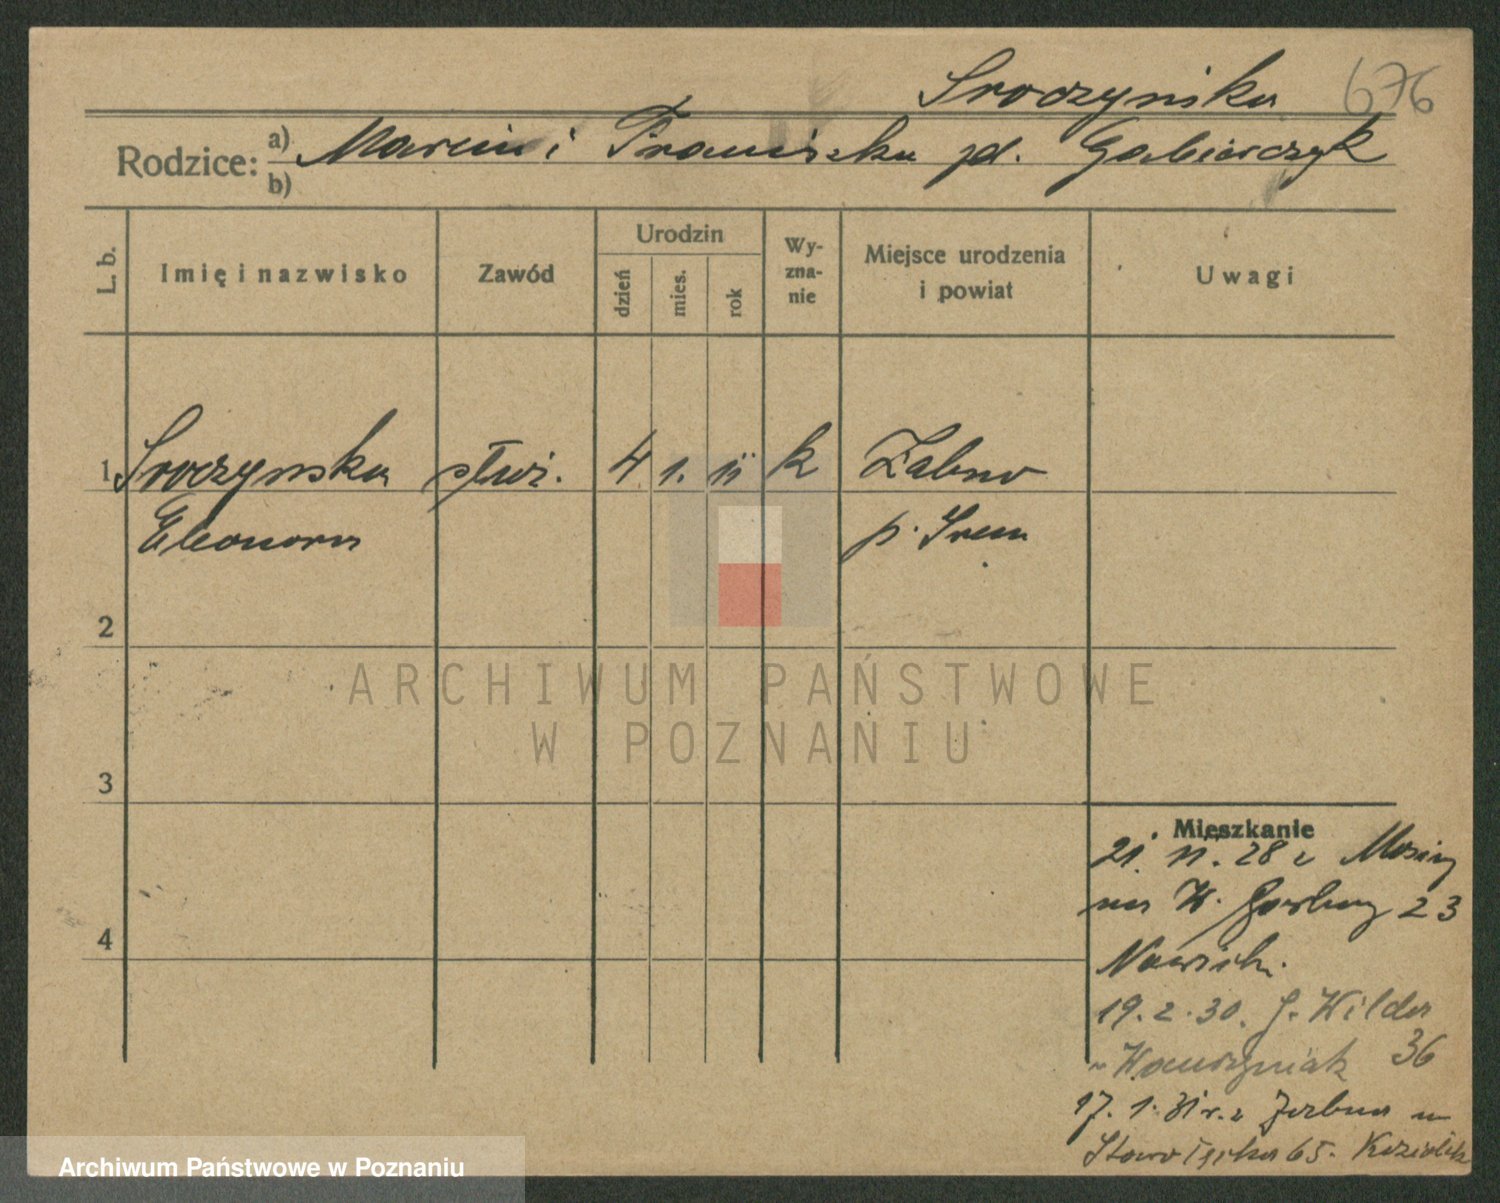 Sroczyńska 676
Rodzice: a) Marcin i Franciszka zd. Gabiarczyk
b)
L. b.
Imię i nazwisko
Zawód
Urodzin
dzień
mies.
rok
Wy-
zna-
nie
Miejsce urodzenia
i powiat
Uwagi
1 Sroczyńska służ. 4 1. 11 k Żabno
Eleonora p. Śrem
2
3
4
Mieszkanie
21. 11. 28 z Mosiny
na W. Garbary 23
Nowicki.
19. 2. 30. G. Wilda
36
" Wawrzyniak
17. 1. 31 r. z Żabna na
65. Koziołek
ARCHIWUM PAŃSTWOWE
W POZNANIU
Archiwum Państwowe w Poznaniu